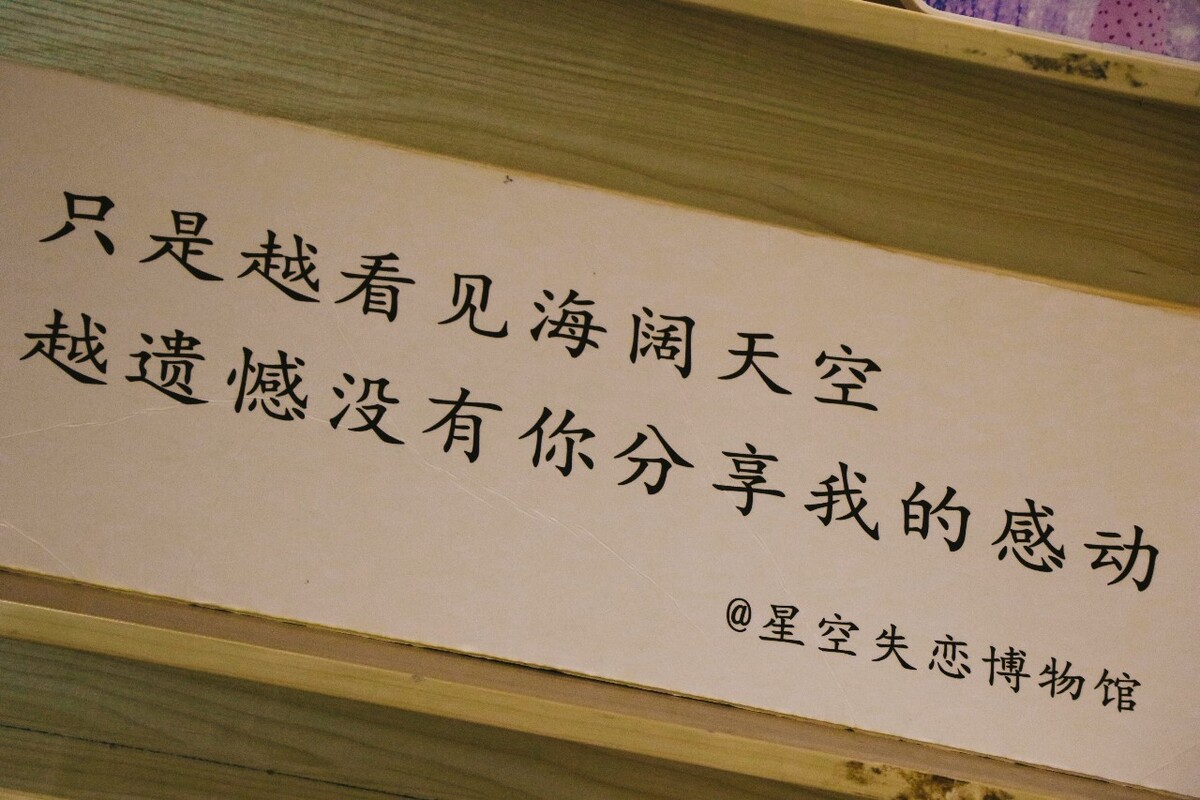 只是越看见海阔天空
越遗憾没有你分享我的感动
@星空失恋博物馆